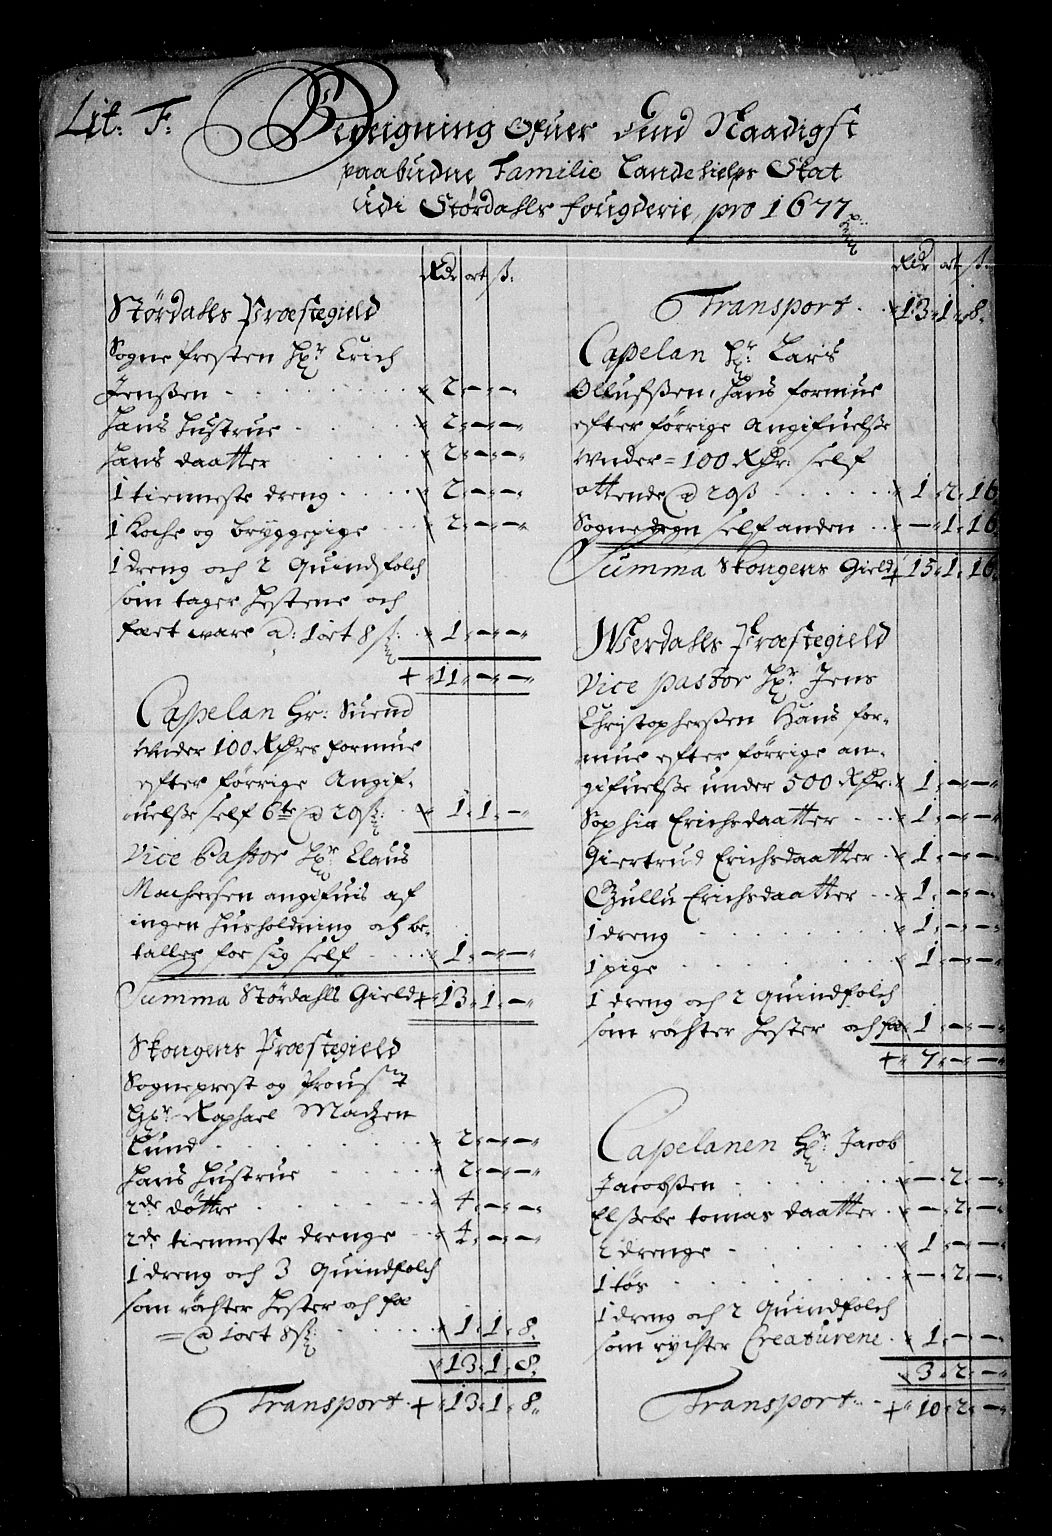 Lit. F:
Bereigning Ofuer dend Naadigst
paabudne Familie Landehielps Skat
udi Stördahls fougderie, pro 1677
Rdr ort ß:
Stördahls Præstegield
Sogne Presten Hr Erich
Jenßen 2 " — " —
hans hustrue 2 " — " —
hans daatter 2 " — " —
1 tienneste dreng 2 " — " —
1 Koche og bryggepige 2 " — " —
1 dreng och 2 Quindfolch
som tager hestene och
fæet ware a: 1 ort 8 ß: 1 " — " —
+ 11 " — " —
Capelan Hr: Suend
under 100 Rdrs formue
efter förrige Angif-
uelße self 6te a 20ß: 1 " 1 " —
Vice Pastor Hr Claus
Machersen angifuis af
ingen husholdning och be-
taller for sig self 1 " — " —
Summa Stördahls Gield + 13 " 1 " —
Skougens Præstegield
Sogneprest og Proust
Hr Raphael Madzen
Lund 2 " — " —
hans hustrue 2 " — " —
2de döttre 4 " — " —
2de tienneste drenge 4 " — " —
1 dreng och 3 Quindfolch
som röchter hester och fæ
= a 1 ort 8ß: 1 " 1 " 8
13 " 1 " 8
Transport + 13 " 1 " 8
Rdr ort ß:
Transport 13 " 1 " 8
Capelan Hr: Lars
Ollufsßen, hans formue
efter förrige Angifuelße
under = 100 Rdr: self
ottende a 20ß 1 " 2 " 16
Sogne degn self anden — " 1 " 16
Summa Skougens Gield + 15 " 1 " 16
Werdahls Præstegield
Vice pastor Hr Jens
Christopherßen Hans for-
mue efter förrige an-
gifuelße under 500 Rdr: 1 " — " —
Sophia Erichsdaatter 1 " — " —
Giertrud Erichsdaatter 1 " — " —
Gullu Erichsdaatter 1 " — " —
1 dreng 1 " — " —
1 pige 1 " — " —
1 dreng och 2 Quindfolch
som röchter hester och fæ 1 " — " —
+ 7 " — " —
Capelanen Hr: Jacob
Jacobßen — " 2 " —
Elßebe tomas daatter — " 2 " —
2 drenge 1 " — " —
1 tös — " 2 " —
1 dreng och 2 Quindfolch
som rychter Creaturene 1 " — " —
3 " 2 " —
Transport + 10 " 2 " —